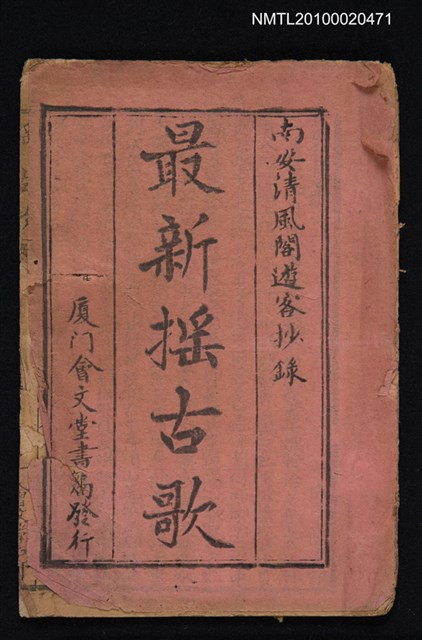 NMTL20100020471
南安清風閣遊客抄錄
最新摇古歌
厦门會文堂書局發行